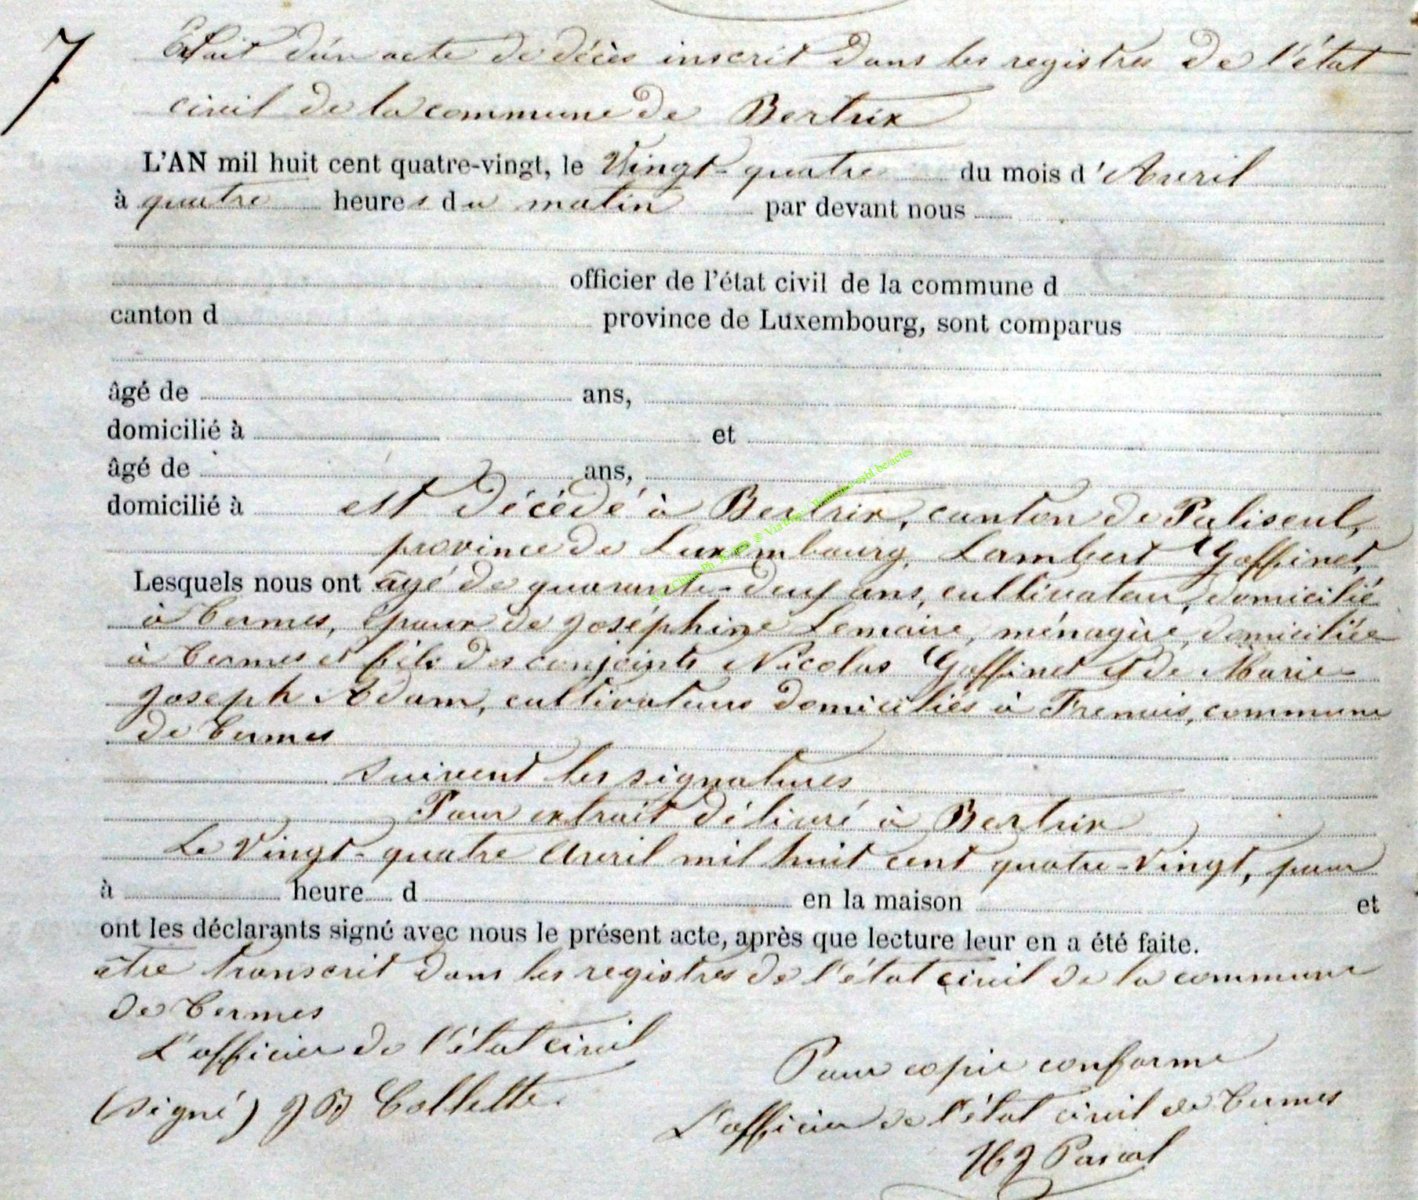 7
Extrait d'un acte de décès inscrit dans les registres de l'état
civil de la commune de Bertrix
L'AN mil huit cent quatre-vingt, le Vingt-quatre du mois d'Avril
à quatre heures du matin par devant nous
officier de l'état civil de la commune d
canton d province de Luxembourg, sont comparus
âgé de ans,
domicilié à et
âgé de ans,
domicilié à est décédé à Bertrix, canton de Paliseul,
province de Luxembourg, Lambert Goffinet,
Lesquels nous ont âgé de quarante-neuf ans, cultivateur, domicilié
à Termes, époux de Joséphine Lemaire, ménagère, domiciliée
à Termes et fils des conjoints Nicolas Goffinet et de Marie
Joseph Adam, cultivateurs domiciliés à Frenois, commune
de Termes
suivent les signatures
Pour extrait délivré à Bertrix
Le Vingt-quatre Avril mil huit cent quatre-Vingt, pour
à heure d en la maison et
ont les déclarants signé avec nous le présent acte, après que lecture leur en a été faite.
être transcrit dans les registres de l'état civil de la commune
de Termes
L'officier de l'état civil
(signé) JB Collette
Pour copie conforme
L'officier de l'état civil de Termes
Pascal